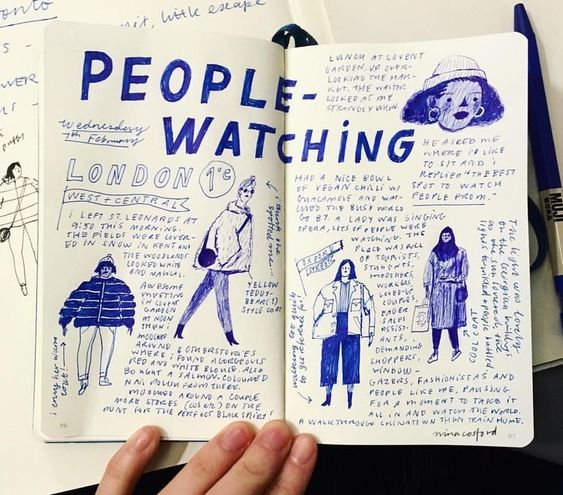 onto
nit, little escape
PEOPLE-
WATCHING
Wednesday
7th February
LONDON 1°c
WEST + CENTRAL
I LEFT ST. LEONARDS AT
9:50 THIS MORNING.
THE FIELDS WERE COVER-
ED IN SNOW IN KENT AND
THE WOODLANDS
LOOKED WHITE
AND MAGICAL.
AWESOME
MEETING
IN COVENT
GARDEN
AT NOON
THEN I
MOOCHED
AROUND
WHERE I FOUND A GORGEOUS
& OTHER STORIES
RED AND WHITE BLOUSE. ALSO
BOUGHT A SALMON-COLOURED
NAIL POLISH FROM THERE.
MOOCHED AROUND A COUPLE
MORE STORES (COS ETC) ON THE
HUNT FOR THE PERFECT BLACK SHIRT!
I envy her warm
coat!
spotted me...
YELLOW
TEDDY-
BEAR(!)
STYLE COAT
96
LUNCH AT COVENT
GARDEN, UP OVER-
LOOKING THE MAR-
KET. THE WAITER
LOOKED AT ME
STRANGELY WHEN
HE ASKED ME
WHERE I'D LIKE
TO SIT AND I
REPLIED "THE BEST
SPOT TO WATCH
PEOPLE FROM."
HAD A NICE BOWL
OF VEGAN CHILLI W/
GUACAMOLE AND WAT-
CHED THE BUSY WORLD
GO BY. A LADY WAS SINGING
OPERA, LOTS OF PEOPLE WERE
WATCHING. THE
PLACE WAS FULL
OF TOURISTS,
STUDENTS,
MOOCHERS,
WORKERS,
LOVED-UP
COUPLES,
EAGER
SALES
ASSIST-
ANTS,
DEMANDING
SHOPPERS,
WINDOW-
GAZERS, FASHIONISTAS AND
PEOPLE LIKE ME, PAUSING
FOR A MOMENT TO TAKE IT
ALL IN AND WATCH THE WORLD.
A WALK THROUGH CHINATOWN THEN TRAIN HOME.
OXFORD
STREET
COOL COAT
The light was lovely
on the Georgian buildings
as the sun lowered, the
lights twinkled + people bustled
nina cosford
97